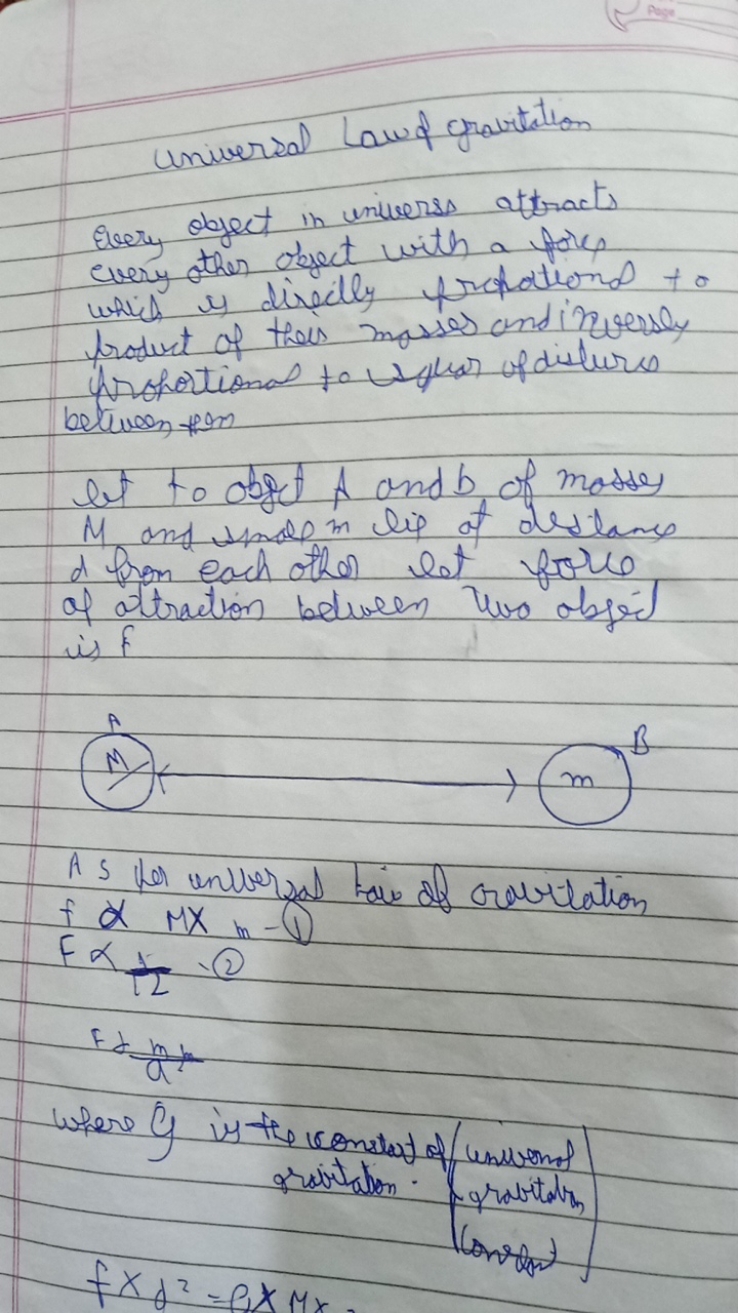 Page
Universal Law of gravitation
Every object in universs attracts
every other object with a force
which is directly propational to
product of their masses and inversely
proportional to squar of disturs
between
let to object A and b of masses
M and small m lie at destance
d from each other let force
of attraction between two object
is f
A
M
B
m
As per universal law of gravitation
f ∝ M X m - ①
F ∝ - ②
F ∝
where G is the constant of (universal
gravitation. gravitation
constant)
f X d² = G X M X